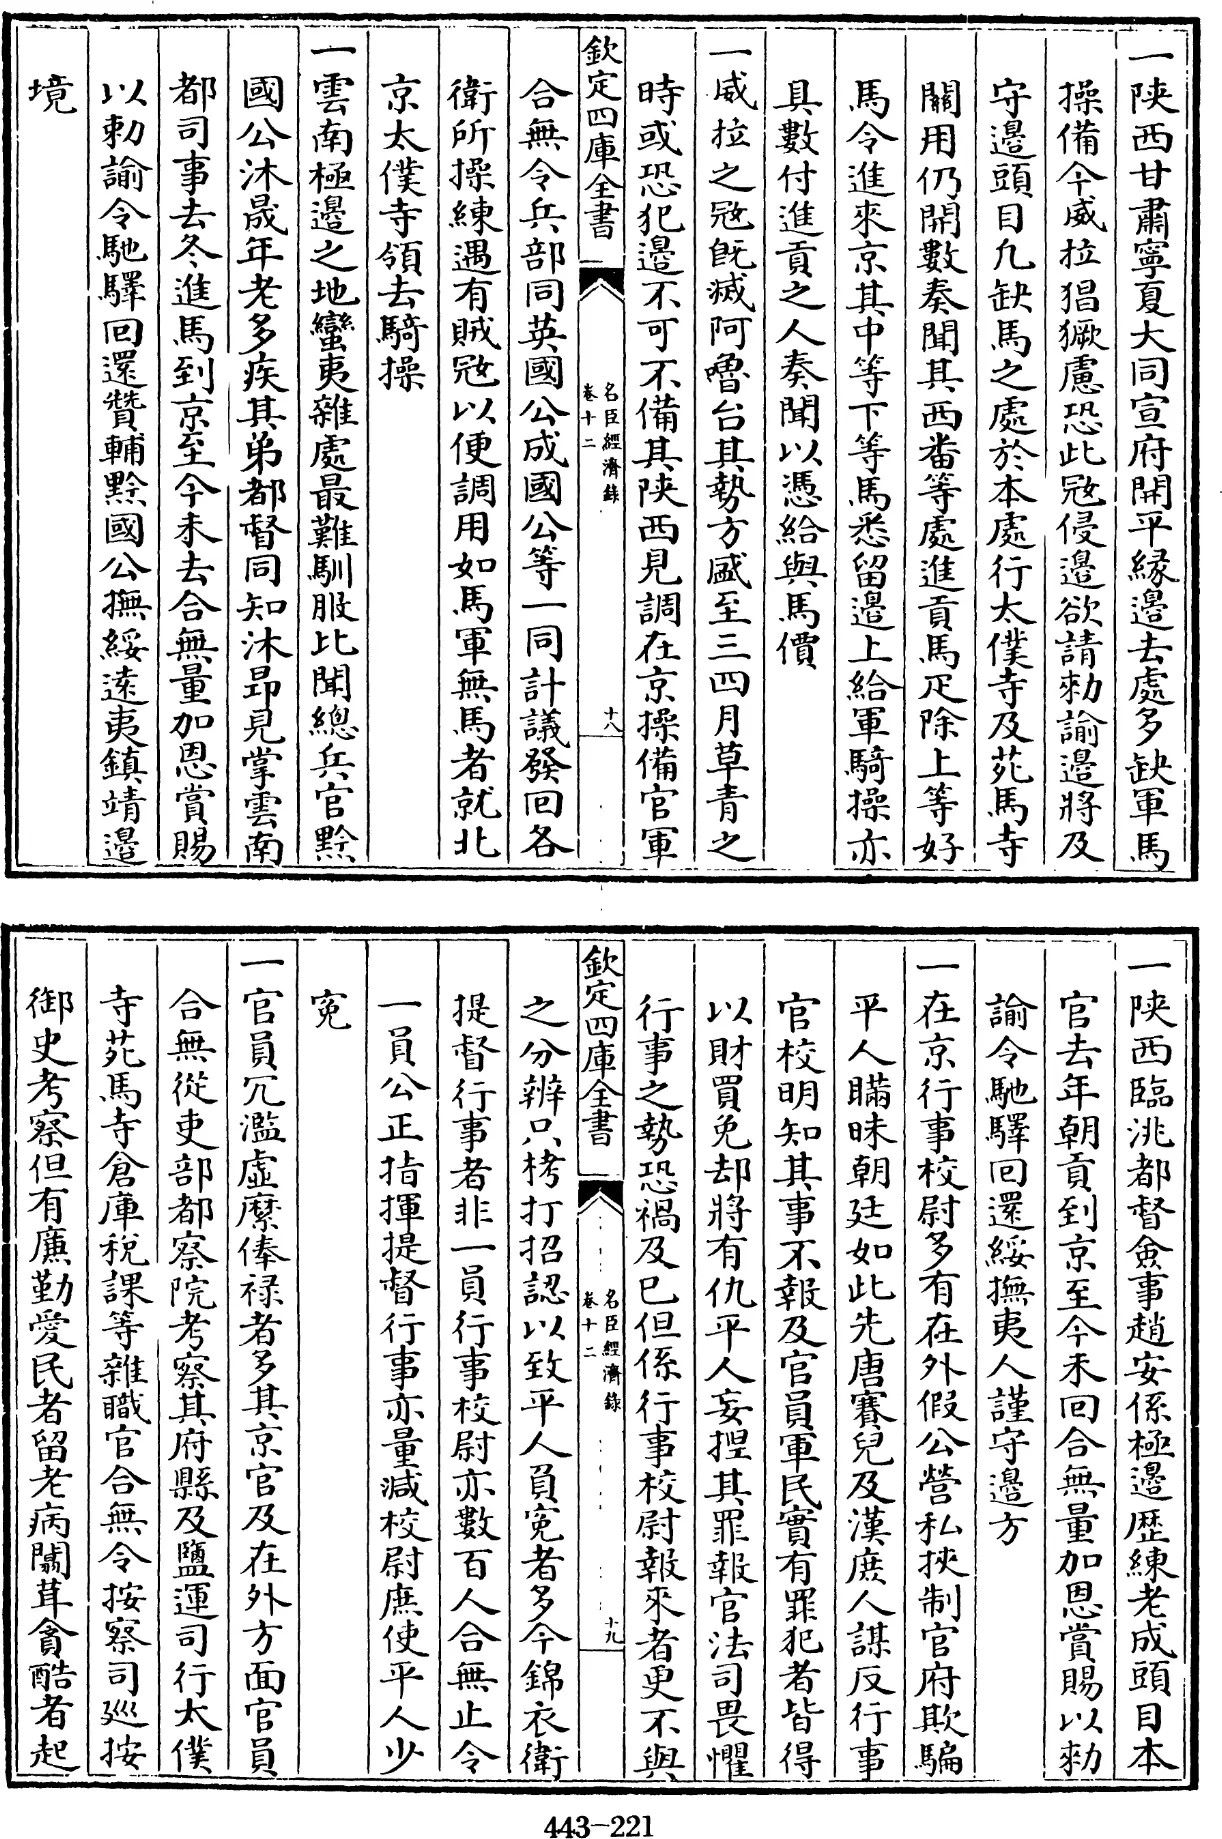 一陝西甘肅寧夏大同宣府開平縁邊去處多缺軍馬
操備今威拉猖獗慮恐此冦侵邊欲請勅諭邊將及
守邊頭目凡缺馬之處於本處行太僕寺及苑馬寺
關用仍開數奏聞其西畨等處進貢馬疋除上等好
馬令進來京其中等下等馬悉留邊上給軍騎操亦
具數付進貢之人奏聞以憑給與馬價
一威拉之冦旣滅阿嚕台其勢方盛至三四月草青之
時或恐犯邊不可不備其陝西見調在京操備官軍
欽定四庫全書
名臣經濟錄
卷十二
十八
合無令兵部同英國公成國公等一同計議發回各
衛所操練遇有賊冦以便調用如馬軍無馬者就北
京太僕寺領去騎操
一雲南極邊之地蠻夷雜處最難馴服比聞總兵官黔
國公沐晟年老多疾其弟都督同知沐昻見掌雲南
都司事去冬進馬到京至今未去合無量加恩賞賜
以勅諭令馳驛回還贊輔黔國公撫綏逺夷鎮靖邊
境
一陝西臨洮都督僉事趙安係極邊歴練老成頭目本
官去年朝貢到京至今未回合無量加恩賞賜以勅
諭令馳驛回還綏撫夷人謹守邊方
一在京行事校尉多有在外假公營私挾制官府欺騙
平人瞞昧朝廷如此先唐賽兒及漢庶人謀反行事
官校明知其事不報及官員軍民實有罪犯者皆得
以財買免却將有仇平人妄揑其罪報官法司畏懼
行事之勢恐禍及已但係行事校尉報來者更不與
欽定四庫全書
名臣經濟錄
卷十二
十九
之分辨只栲打招認以致平人負寃者多今錦衣衛
提督行事者非一員行事校尉亦數百人合無止令
一員公正指揮提督行事亦量減校尉庶使平人少
寃
一官員冗濫虛縻俸禄者多其京官及在外方面官員
合無從吏部都察院考察其府縣及鹽運司行太僕
寺苑馬寺倉庫稅課等雜職官合無令按察司廵按
御史考察但有亷勤愛民者留老病闒茸貪酷者起
443-221